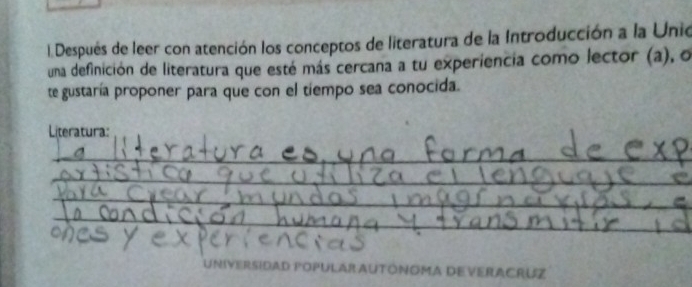 1. Después de leer con atención los conceptos de literatura de la Introducción a la Uni
una definición de literatura que esté más cercana a tu experiencia como lector (a), o
te gustaría proponer para que con el tiempo sea conocida.
Literatura:
La literatura es una forma de exp
artística que utiliza el lenguaje e
para crear mundos imaginarios, e
la condición humana y transmitir id
ones y experiencias
UNIVERSIDAD POPULAR AUTÓNOMA DE VERACRUZ